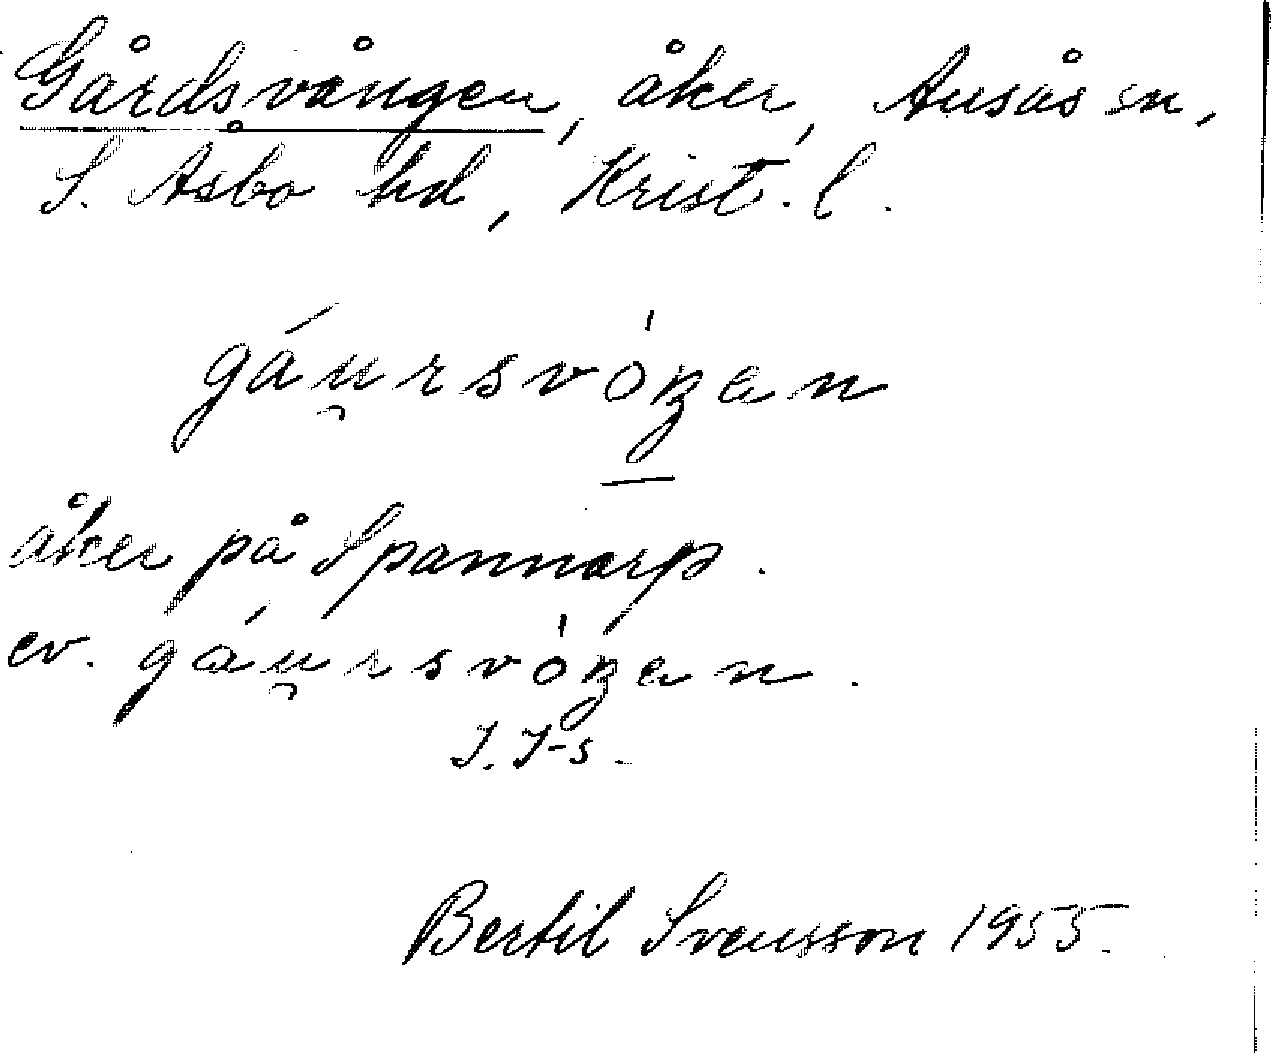 Gårdsvången, åker, Ausås sn,
S. Åsbo hd, Krist. l.
gáu̯rsvóŋan
åker på Spannarp.
ev. gáu̯rsvóŋan.
J. J-s.
Bertil Svensson 1955.